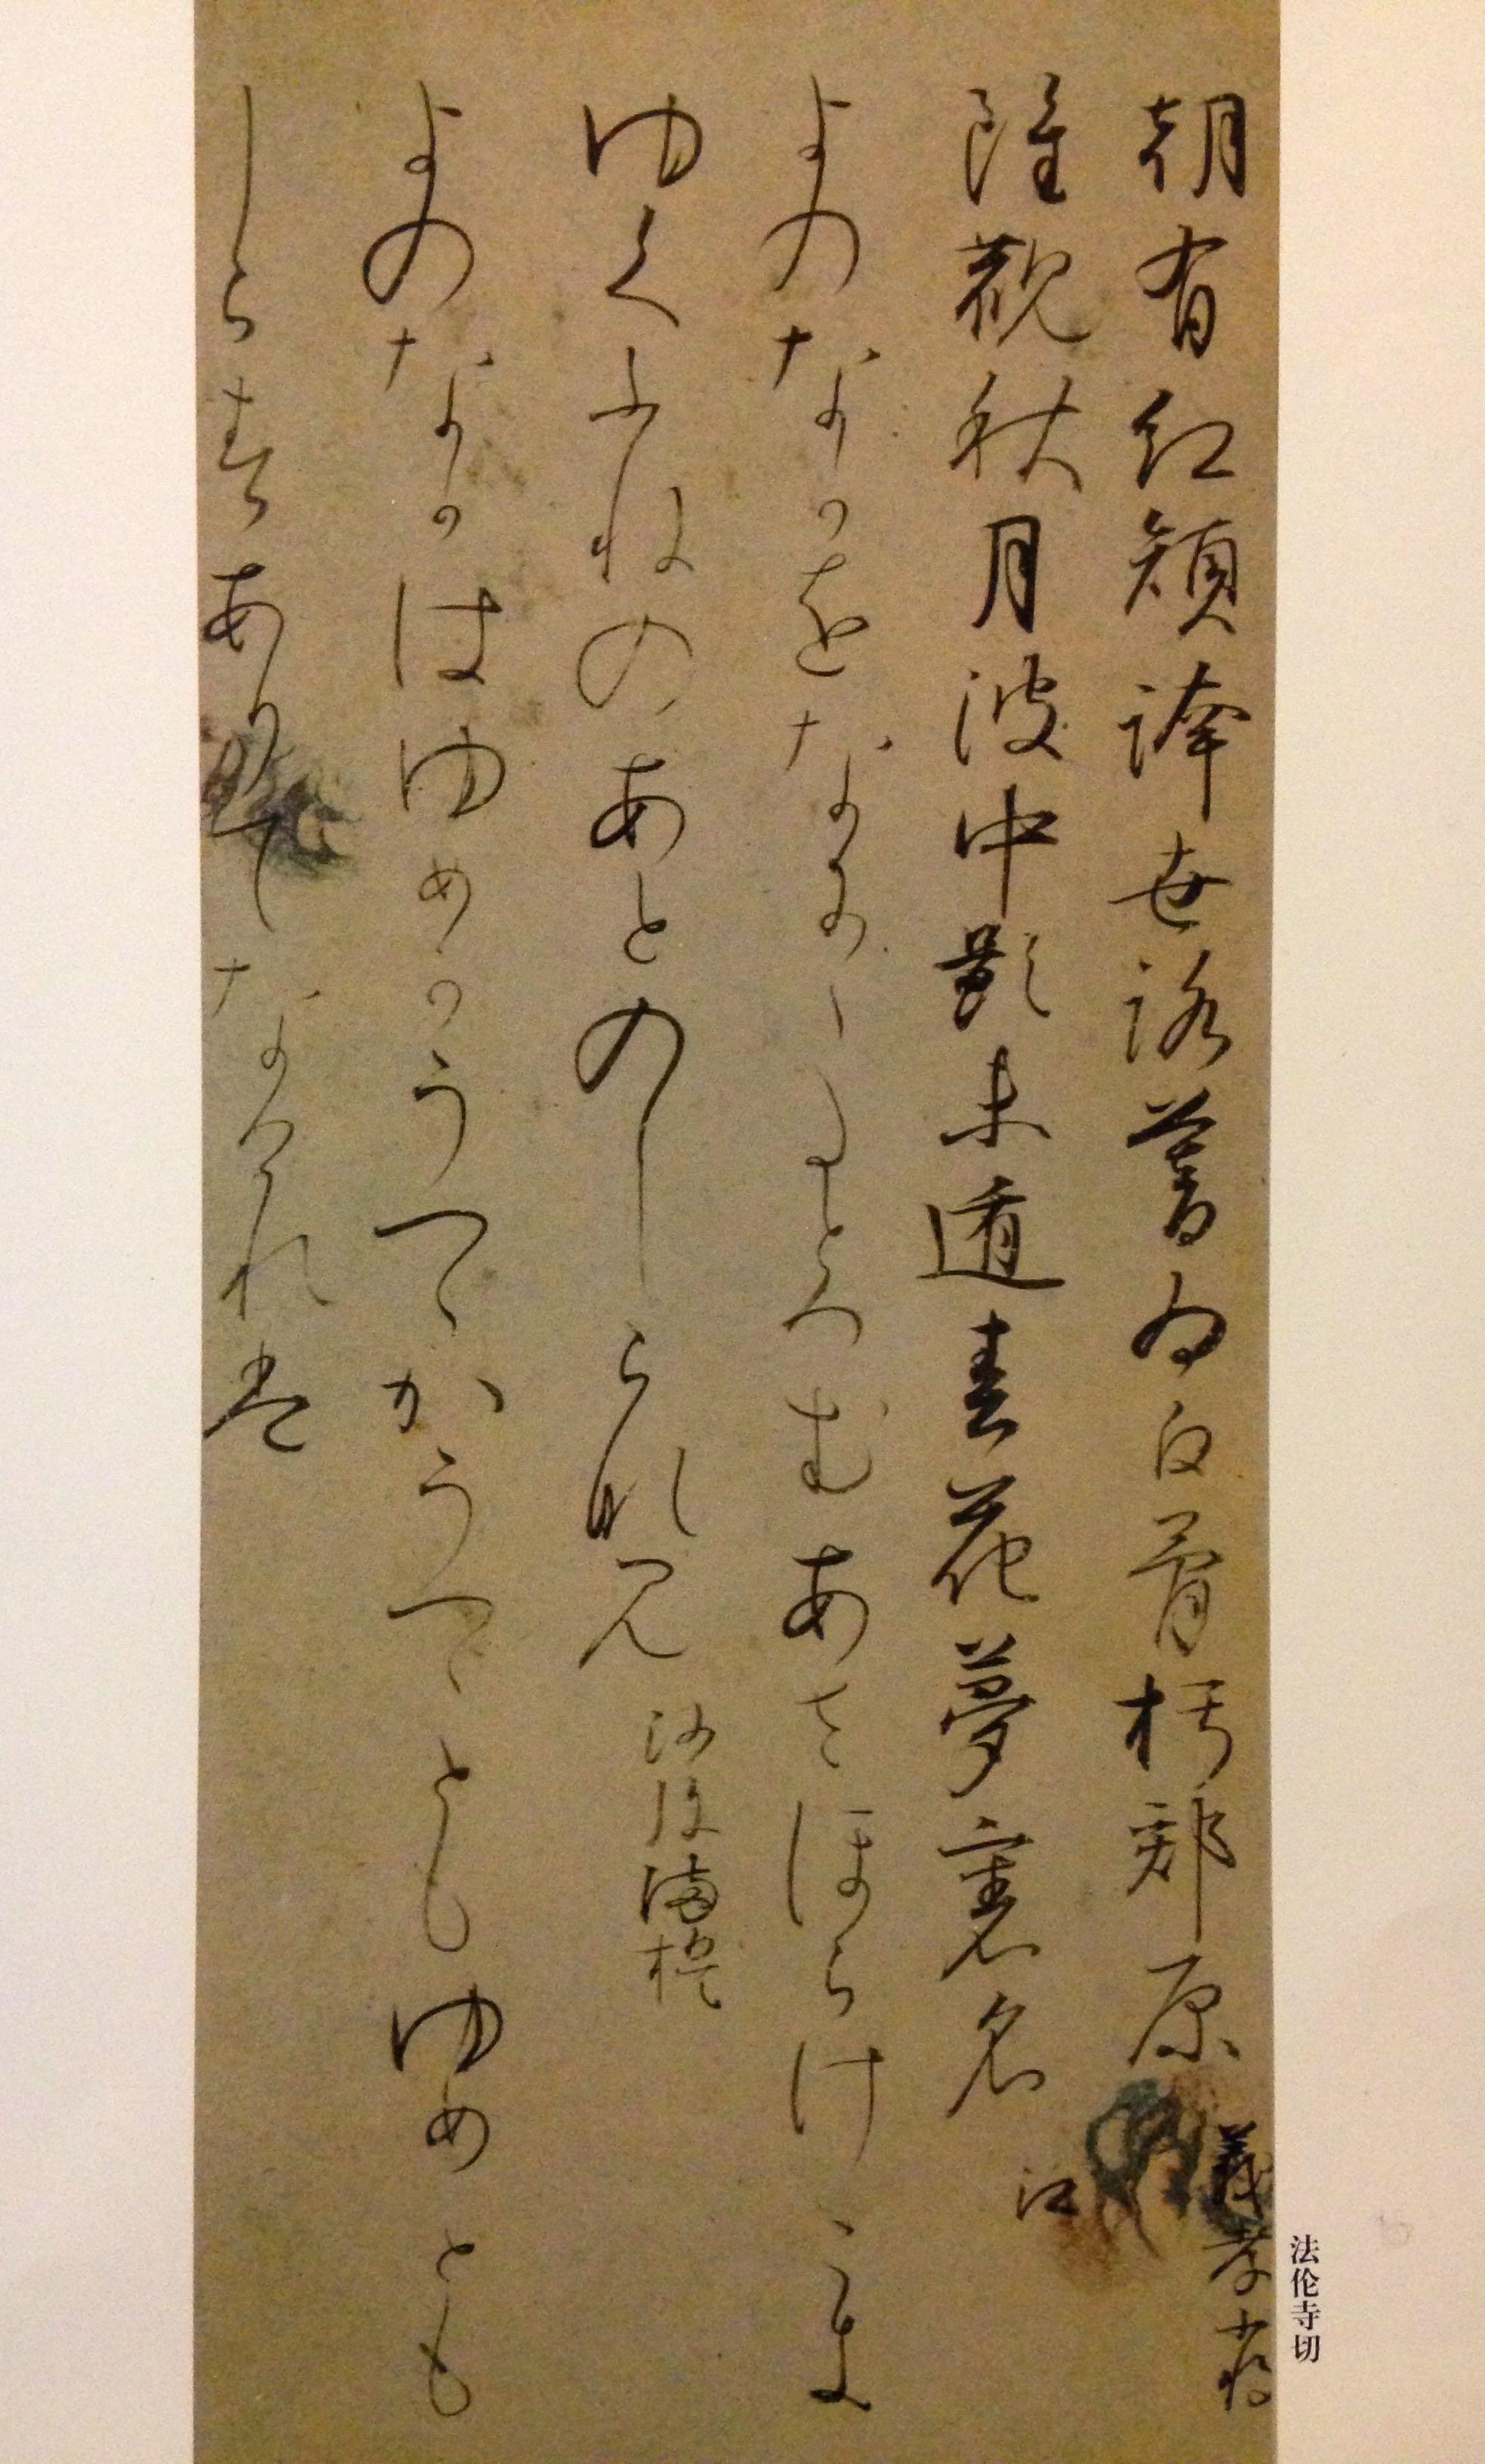 朝有紅顔誇世路暮為白骨朽郊原 義孝少将
雖観秋月波中影未遁春花夢裏名 江
よのなかをなにゝたとへむあさほらけこき
ゆくふねのあとのしらなみ 沙弥満誓
よのなかはゆめかうつゝかうつゝともゆめとも
しらすありてなけれは
法伦寺切